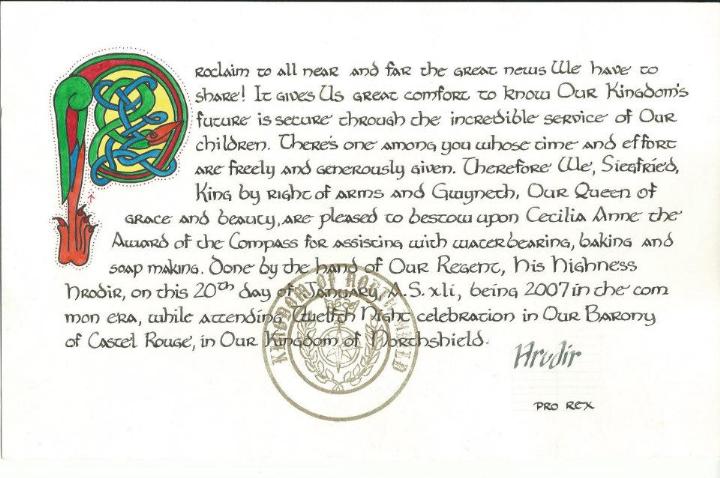 Proclaim to all near and far the great news We have to
share! It gives Us great comfort to know Our Kingdom's
future is secure through the incredible service of Our
children. There's one among you whose time and effort
are freely and generously given. Therefore We, Siegfried,
King by right of arms and Gwyneth, Our Queen of
grace and beauty, are pleased to bestow upon Cecilia Anne the
Award of the Compass for assisting with waterbearing, baking and
soap making. Done by the hand of Our Regent, His Highness
Hrodir, on this 20th day of January, A.S. xli, being 2007 in the com
mon era, while attending Twelfth Night celebration in Our Barony
of Castel Rouge, in Our Kingdom of Northshield.
KINGDOM OF NORTHSHIELD
Hrodir
PRO REX